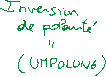 Inversion
de polarité
"
(UMPOLUNG)